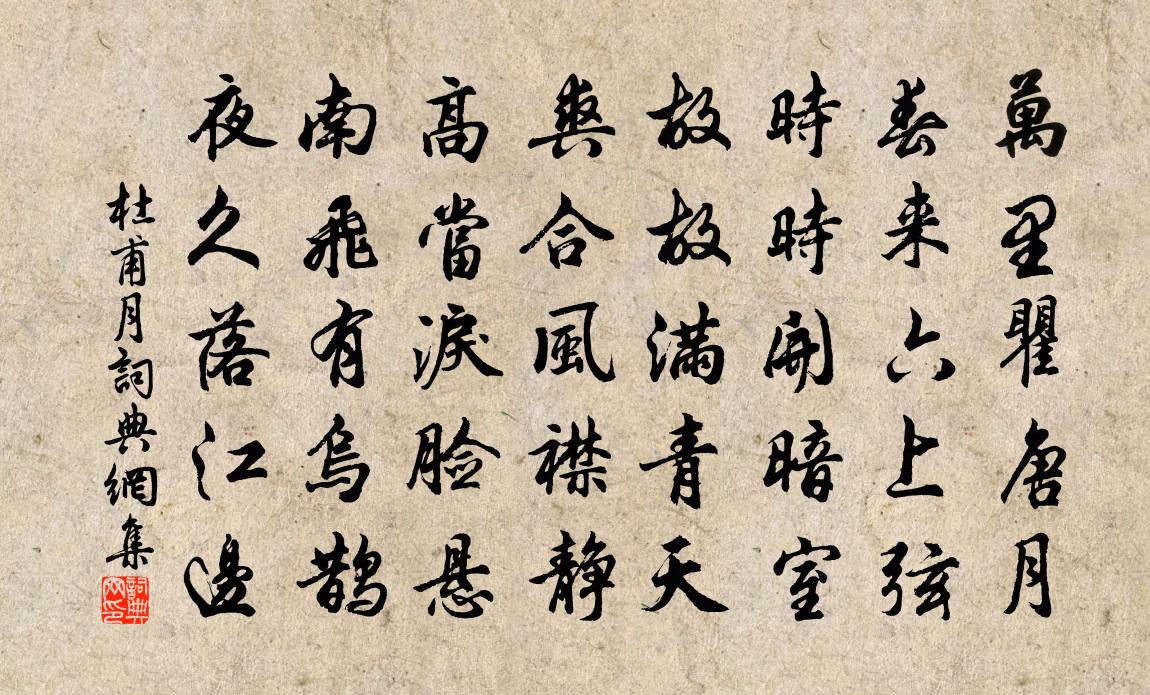 萬里瞿唐月
春来六上弦
時時開暗室
故故滿青天
爽合風襟静
高當淚脸悬
南飛有烏鵲
夜久落江邊
杜甫月詞典網集
詞典网印